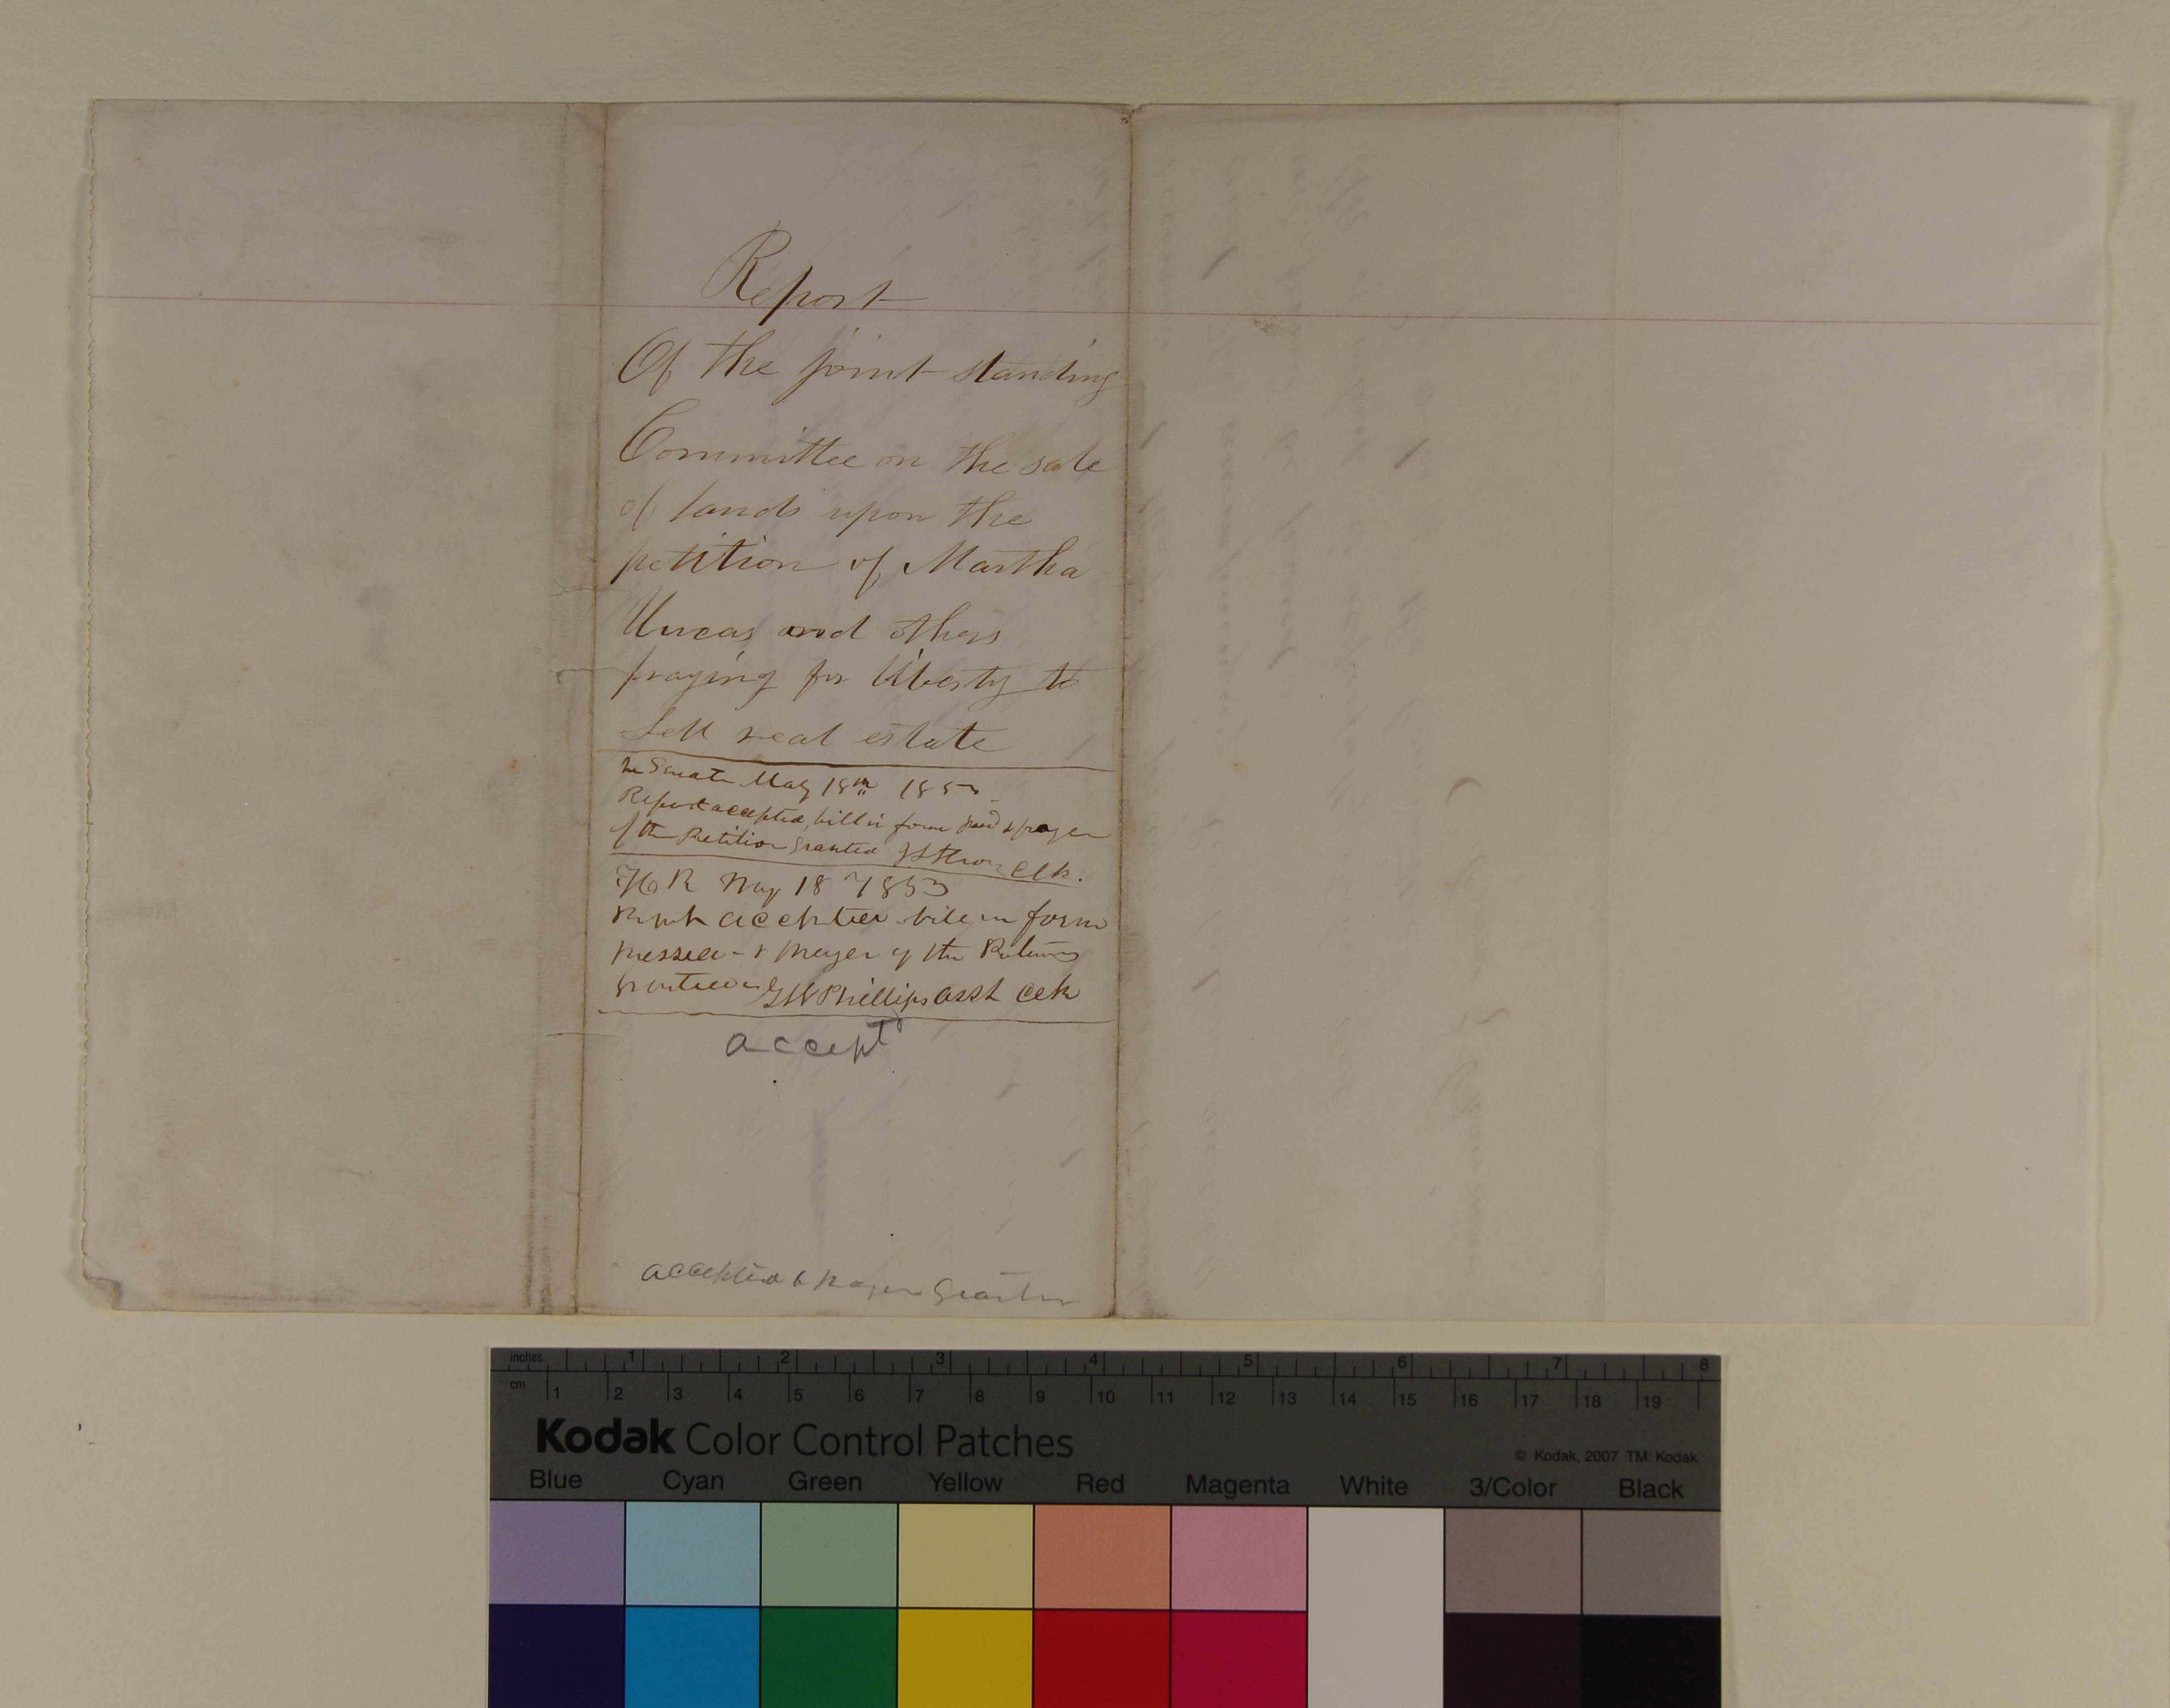 Report
Of the joint standing
Committee on the sale
of lands upon the
petition of Martha
Uncas and others
praying for liberty to
sell real estate
In Senate May 18th 1853
Report accepted, bill in form & prayer
of the Petition granted Clk.
H of R May 18 1853
accepted bill in form
passed - & prayer of the
G W Phillips asst Clk
accept
accepted & prayer
inches 1 2 3 4 5 6 7 8
cm 1 2 3 4 5 6 7 8 9 10 11 12 13 14 15 16 17 18 19
Kodak Color Control Patches
© Kodak, 2007 TM: Kodak
Blue Cyan Green Yellow Red Magenta White 3/Color Black